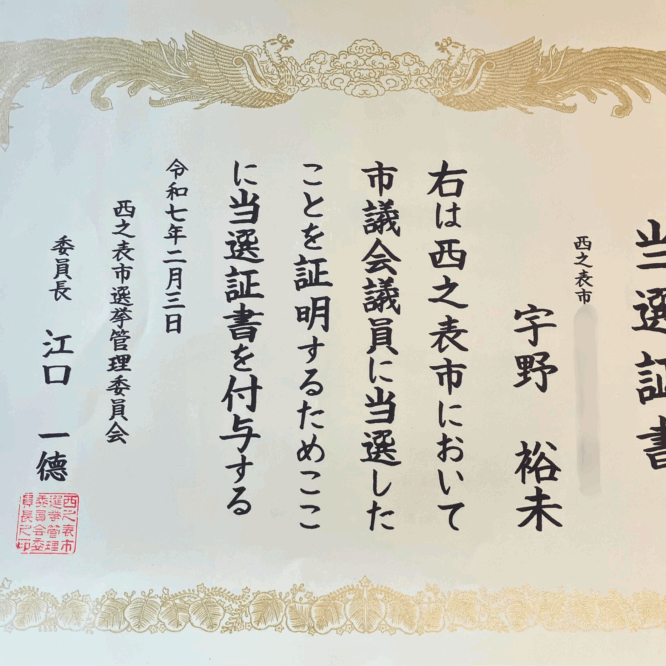 当選証書
西之表市
宇野 裕未
右は西之表市において
市議会議員に当選した
ことを証明するためここ
に当選証書を付与する
令和七年二月三日
西之表市選挙管理委員会
委員長 江口 一德
西之表市
選挙管理
委員会委
員長之印